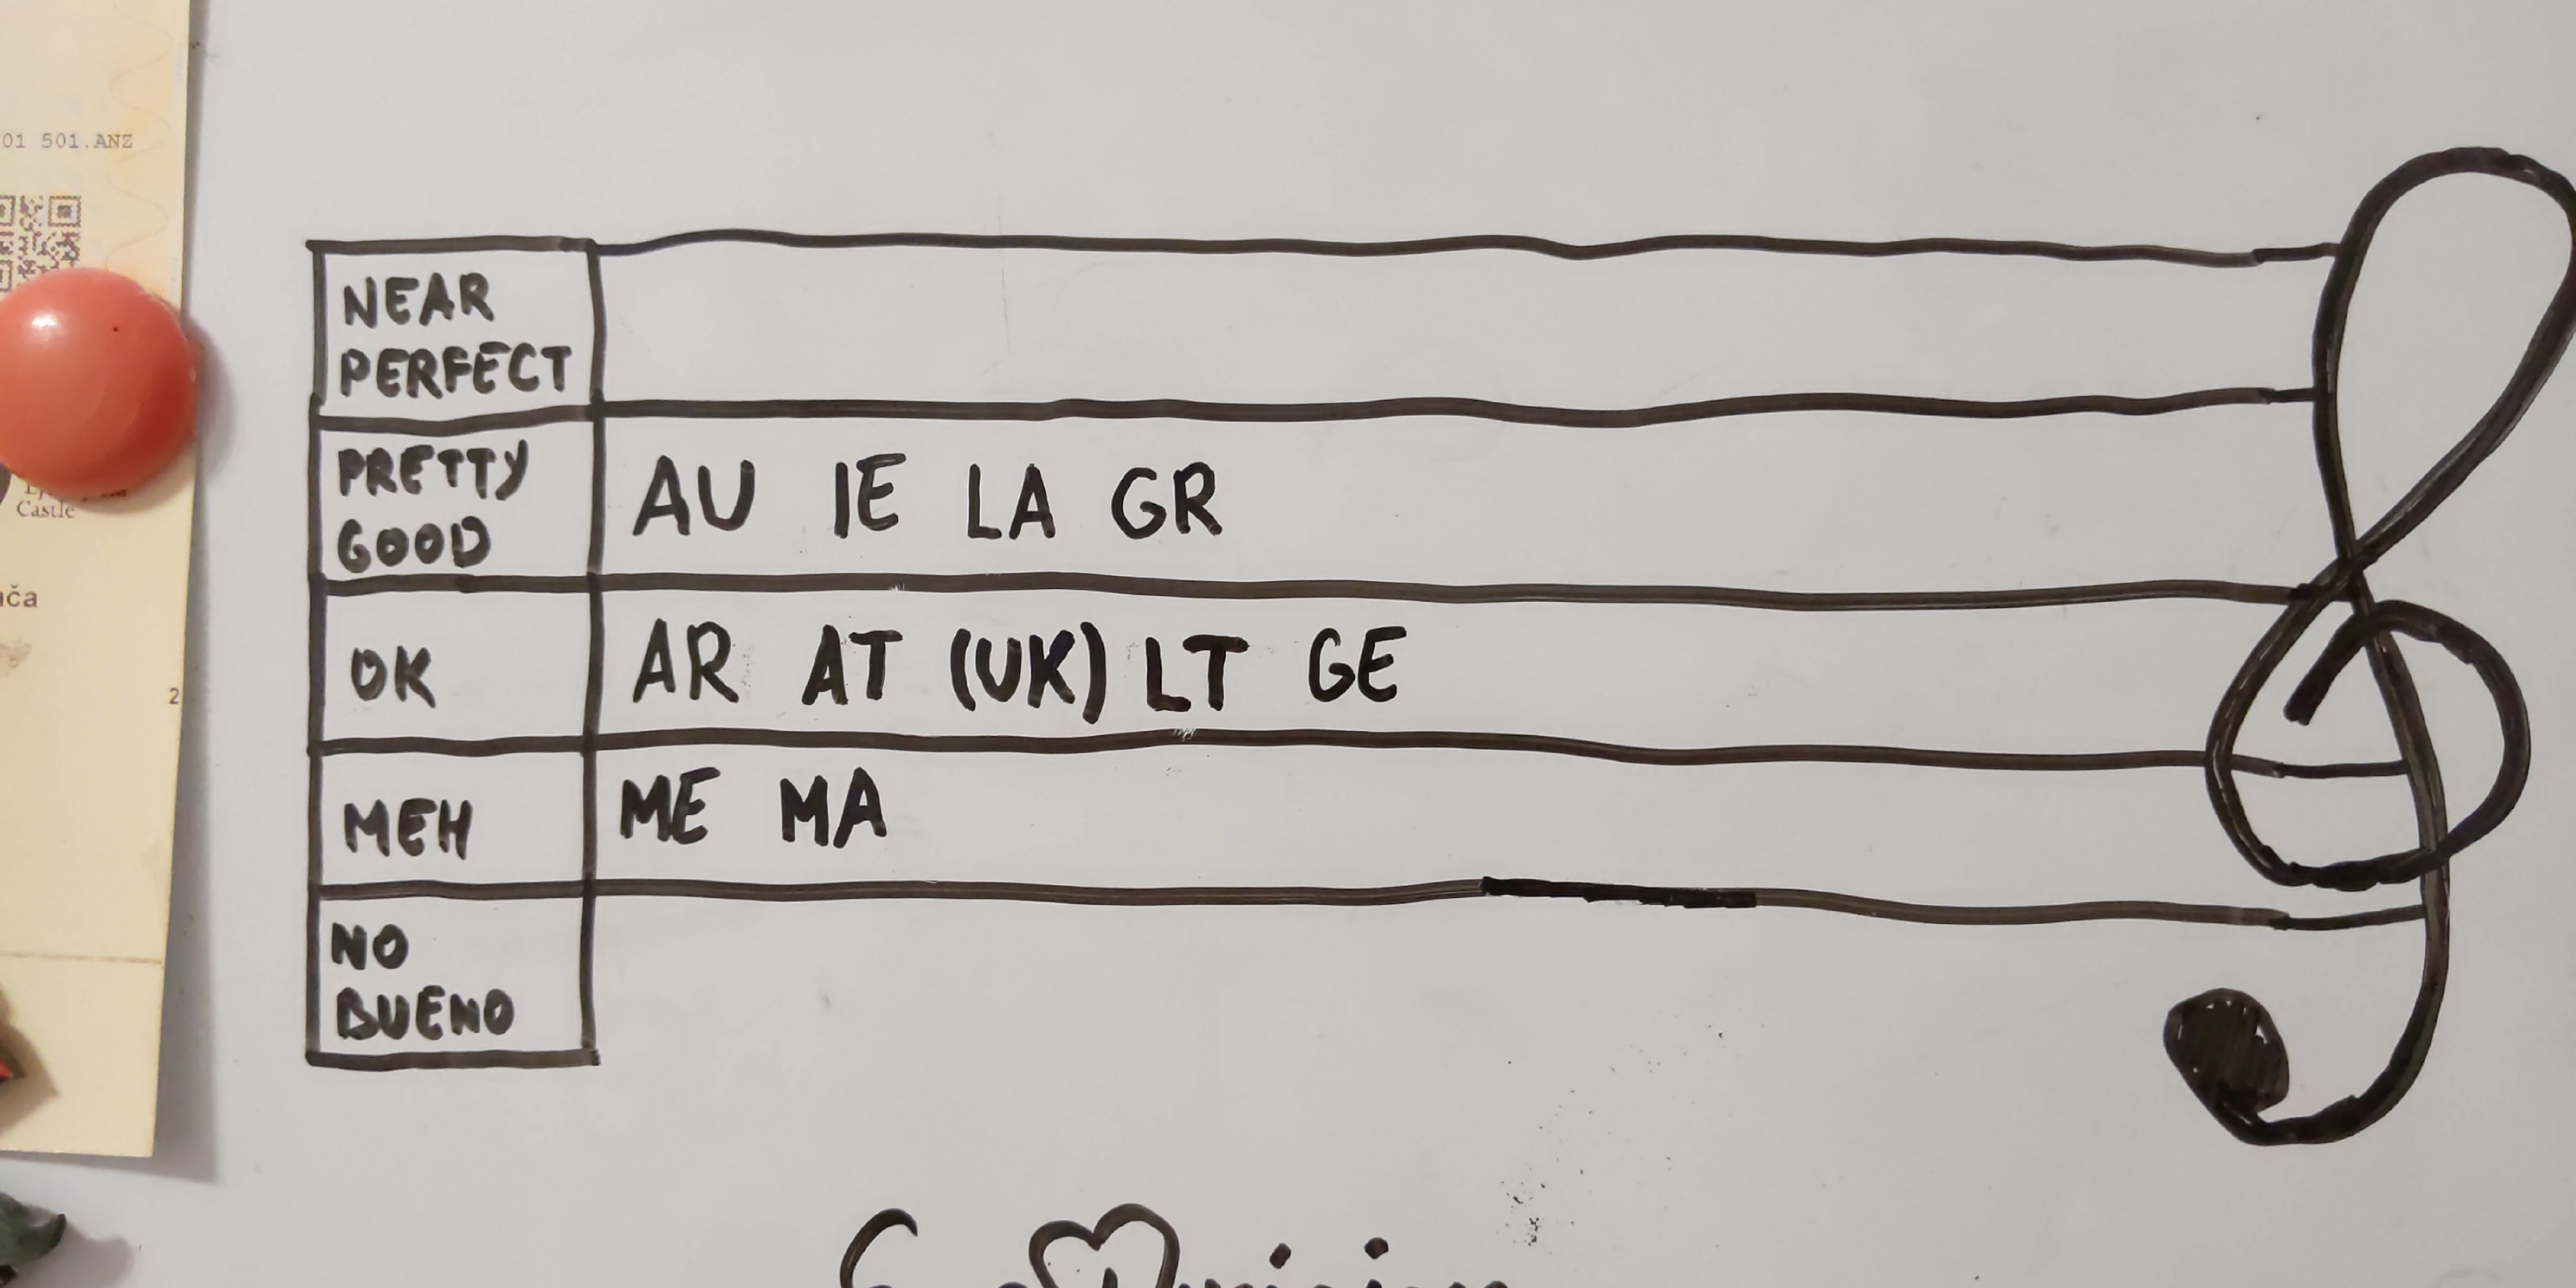 01 501.ANZ
Castle
ča
2
NEAR
PERFECT
PRETTY
GOOD
AU IE LA GR
OK
AR AT (UK) LT GE
MEH
ME MA
NO
BUENO